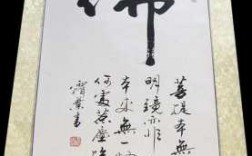 佛
菩提本無
明鏡亦非
本來無一物
何處惹塵埃